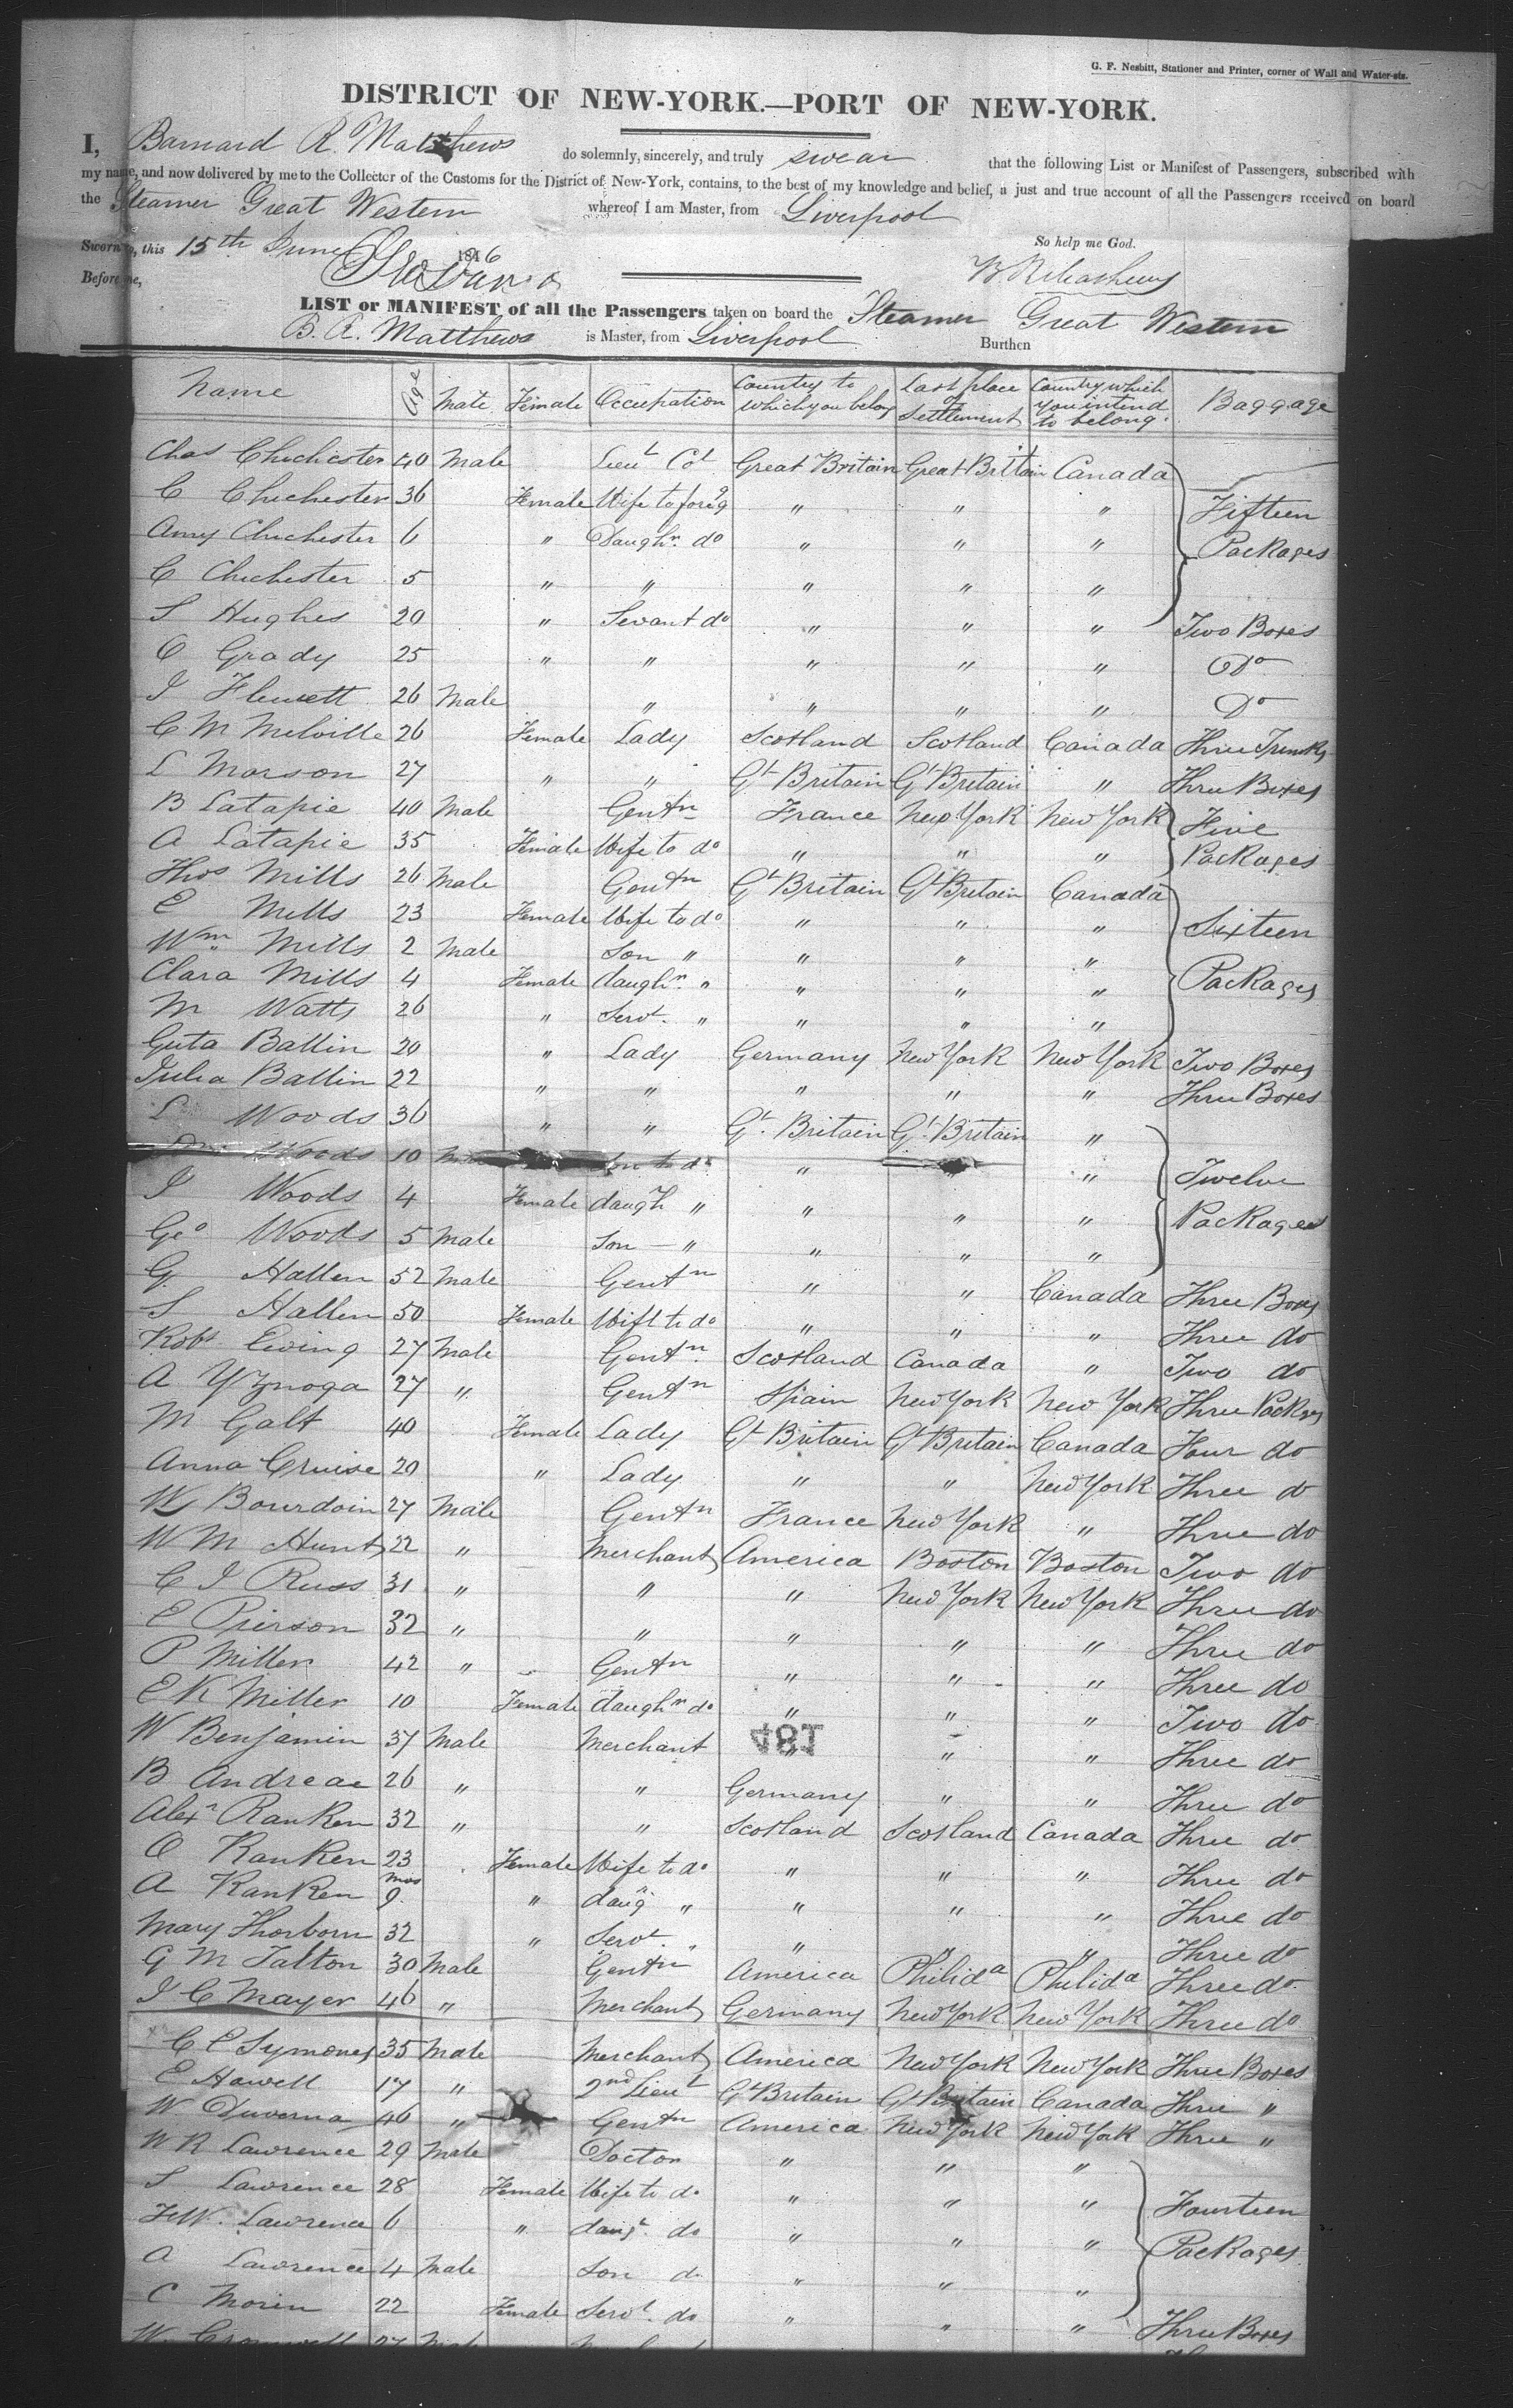 G. F. Nesbitt, Stationer and Printer, corner of Wall and Water-sts.
DISTRICT OF NEW-YORK.—PORT OF NEW-YORK.
I, Barnard R. Matthews do solemnly, sincerely, and truly swear that the following List or Manifest of Passengers, subscribed with
my name, and now delivered by me to the Collector of the Customs for the District of New-York, contains, to the best of my knowledge and belief, a just and true account of all the Passengers received on board
the Steamer Great Western whereof I am Master, from Liverpool
Sworn to, this 15th June 1846 So help me God.
Before me, B R Mathews
LIST or MANIFEST of all the Passengers taken on board the Steamer Great Western
B. R. Matthews is Master, from Liverpool Burthen
Name Age Male Female Occupation Country to which you belong Last place of Settlement Country which you intend to belong. Baggage
Chas Chichester 40 Male Lieut Col Great Britain Great Britain Canada
C Chichester 36 Female Wife to foreg " " " Fifteen
Amy Chichester 6 " Daughr. do " " " Packages
C Chichester 5 " " " " "
S Hughes 20 " Servant do " " " Two Boxes
C Grady 25 " " " " " Do
J Flewett 26 Male " " " " Do
C M Melville 26 Female Lady Scotland Scotland Canada Three Trunks
L Morson 27 " " Gt Britain Gt Britain " Three Boxes
B Latapie 40 Male Gentn France New York New York Five
A Latapie 35 Female Wife to do " " " Packages
Thos Mills 26 Male Gentn Gt Britain Gt Britain Canada
E Mills 23 Female Wife to do " " " Sixteen
Wm Mills 2 Male Son " " " "
Clara Mills 4 Female daughr. " " " " Packages
M Watts 26 " Servt. " " " "
Guta Ballin 20 " Lady Germany New York New York Two Boxes
Julia Ballin 22 " " " " " Three Boxes
L Woods 36 " " Gt. Britain Gt. Britain "
Woods 10 Son to do " " Twelve
J Woods 4 Female daugh " " " " Packages
Geo Woods 5 Male Son — " " " "
G. Hallen 52 Male Gentn " " Canada Three Boxes
S Hallen 50 Female Wife to do " " " Three do
Robt Ewing 27 Male Gentn. Scotland Canada " Two do
A Yznoga 27 " Gentn Spain New York New York Three Packages
M Galt 40 Female Lady Gt Britain Gt Britain Canada Four do
Anna Cruise 20 " Lady " " New York Three do
W Bourdoin 27 Male Gentn France New York " Three do
W M Hunt 22 " Merchant America Boston Boston Two do
C J Russ 31 " " " New York New York Three do
E Pierson 32 " " " " " Three do
P Miller 42 " Gentn " " " Three do
E K Miller 10 Female daughr do " " " Two do
W Benjamin 37 Male Merchant " " " Three do
481
B Andreae 26 " " Germany " " Three do
Alexr Ranken 32 " " Scotland Scotland Canada Three do
C Ranken 23 Female Wife to do " " " Three do
A Ranken 9 mos " daug " " " " Three do
Mary Thorborn 32 " Servt. " " " " Three do
G M Talton 30 Male Gentn America Philida Philida Three do
J C Mayer 46 " Merchant Germany New York New York Three do
C C Symones 35 Male Merchant America New York New York Three Boxes
E Howell 17 " 2nd Lieut Gt Britain Gt Britain Canada Three "
W. Duverna 46 " Gentn America New York New York Three "
W R Lawrence 29 Male Doctor " " "
S Lawrence 28 Female Wife to do " " " Fourteen
Lawrence 6 " daugt. do " " " Packages
A Lawrence 4 Male Son do " " "
C Morin 22 Female Servt. do " " " Three Boxes